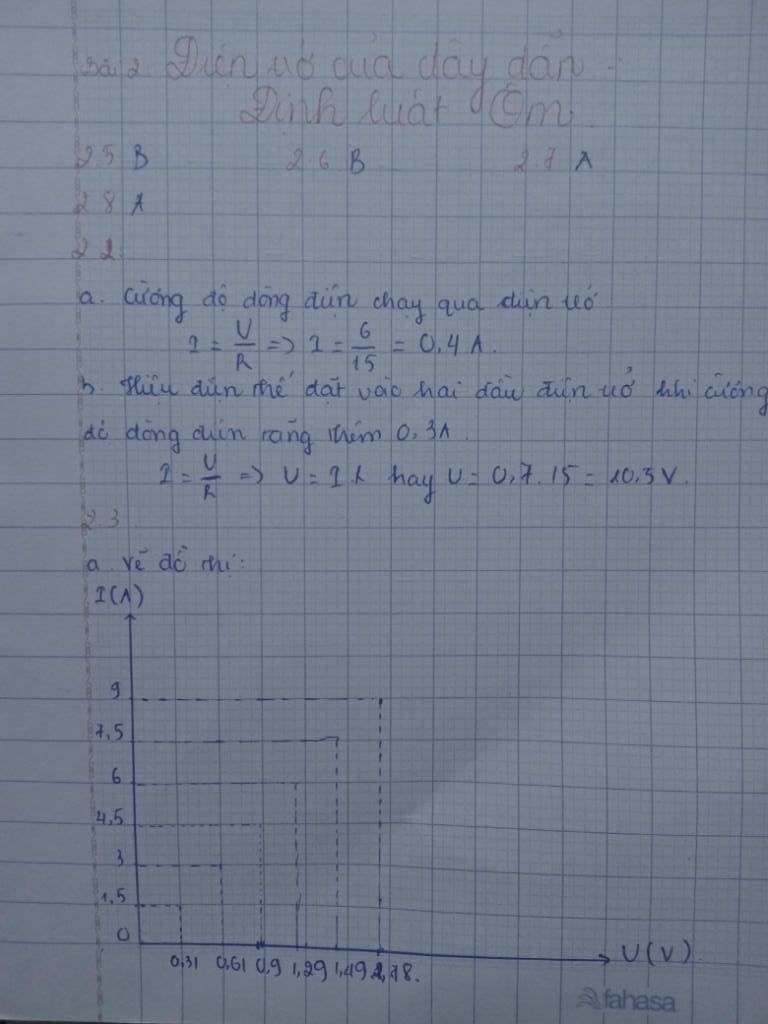 Bài 2. Điện trở của dây dẫn -
Định luật Ôm
2.5 B 2.6 B 2.7 A
2.8 A
2.2
a. Cường độ dòng điện chạy qua điện trở
I = U/R => I = 6/15 = 0,4 A.
b. Hiệu điện thế đặt vào hai đầu điện trở khi cường
độ dòng điện tăng thêm 0,3A.
I = U/R => U = I.R hay U = 0,7.15 = 10,5 V.
2.3
a. Vẽ đồ thị:
I(A)
9
7,5
6
4,5
3
1,5
0
0,31 0,61 0,9 1,29 1,49 1,78. U(V)
fahasa